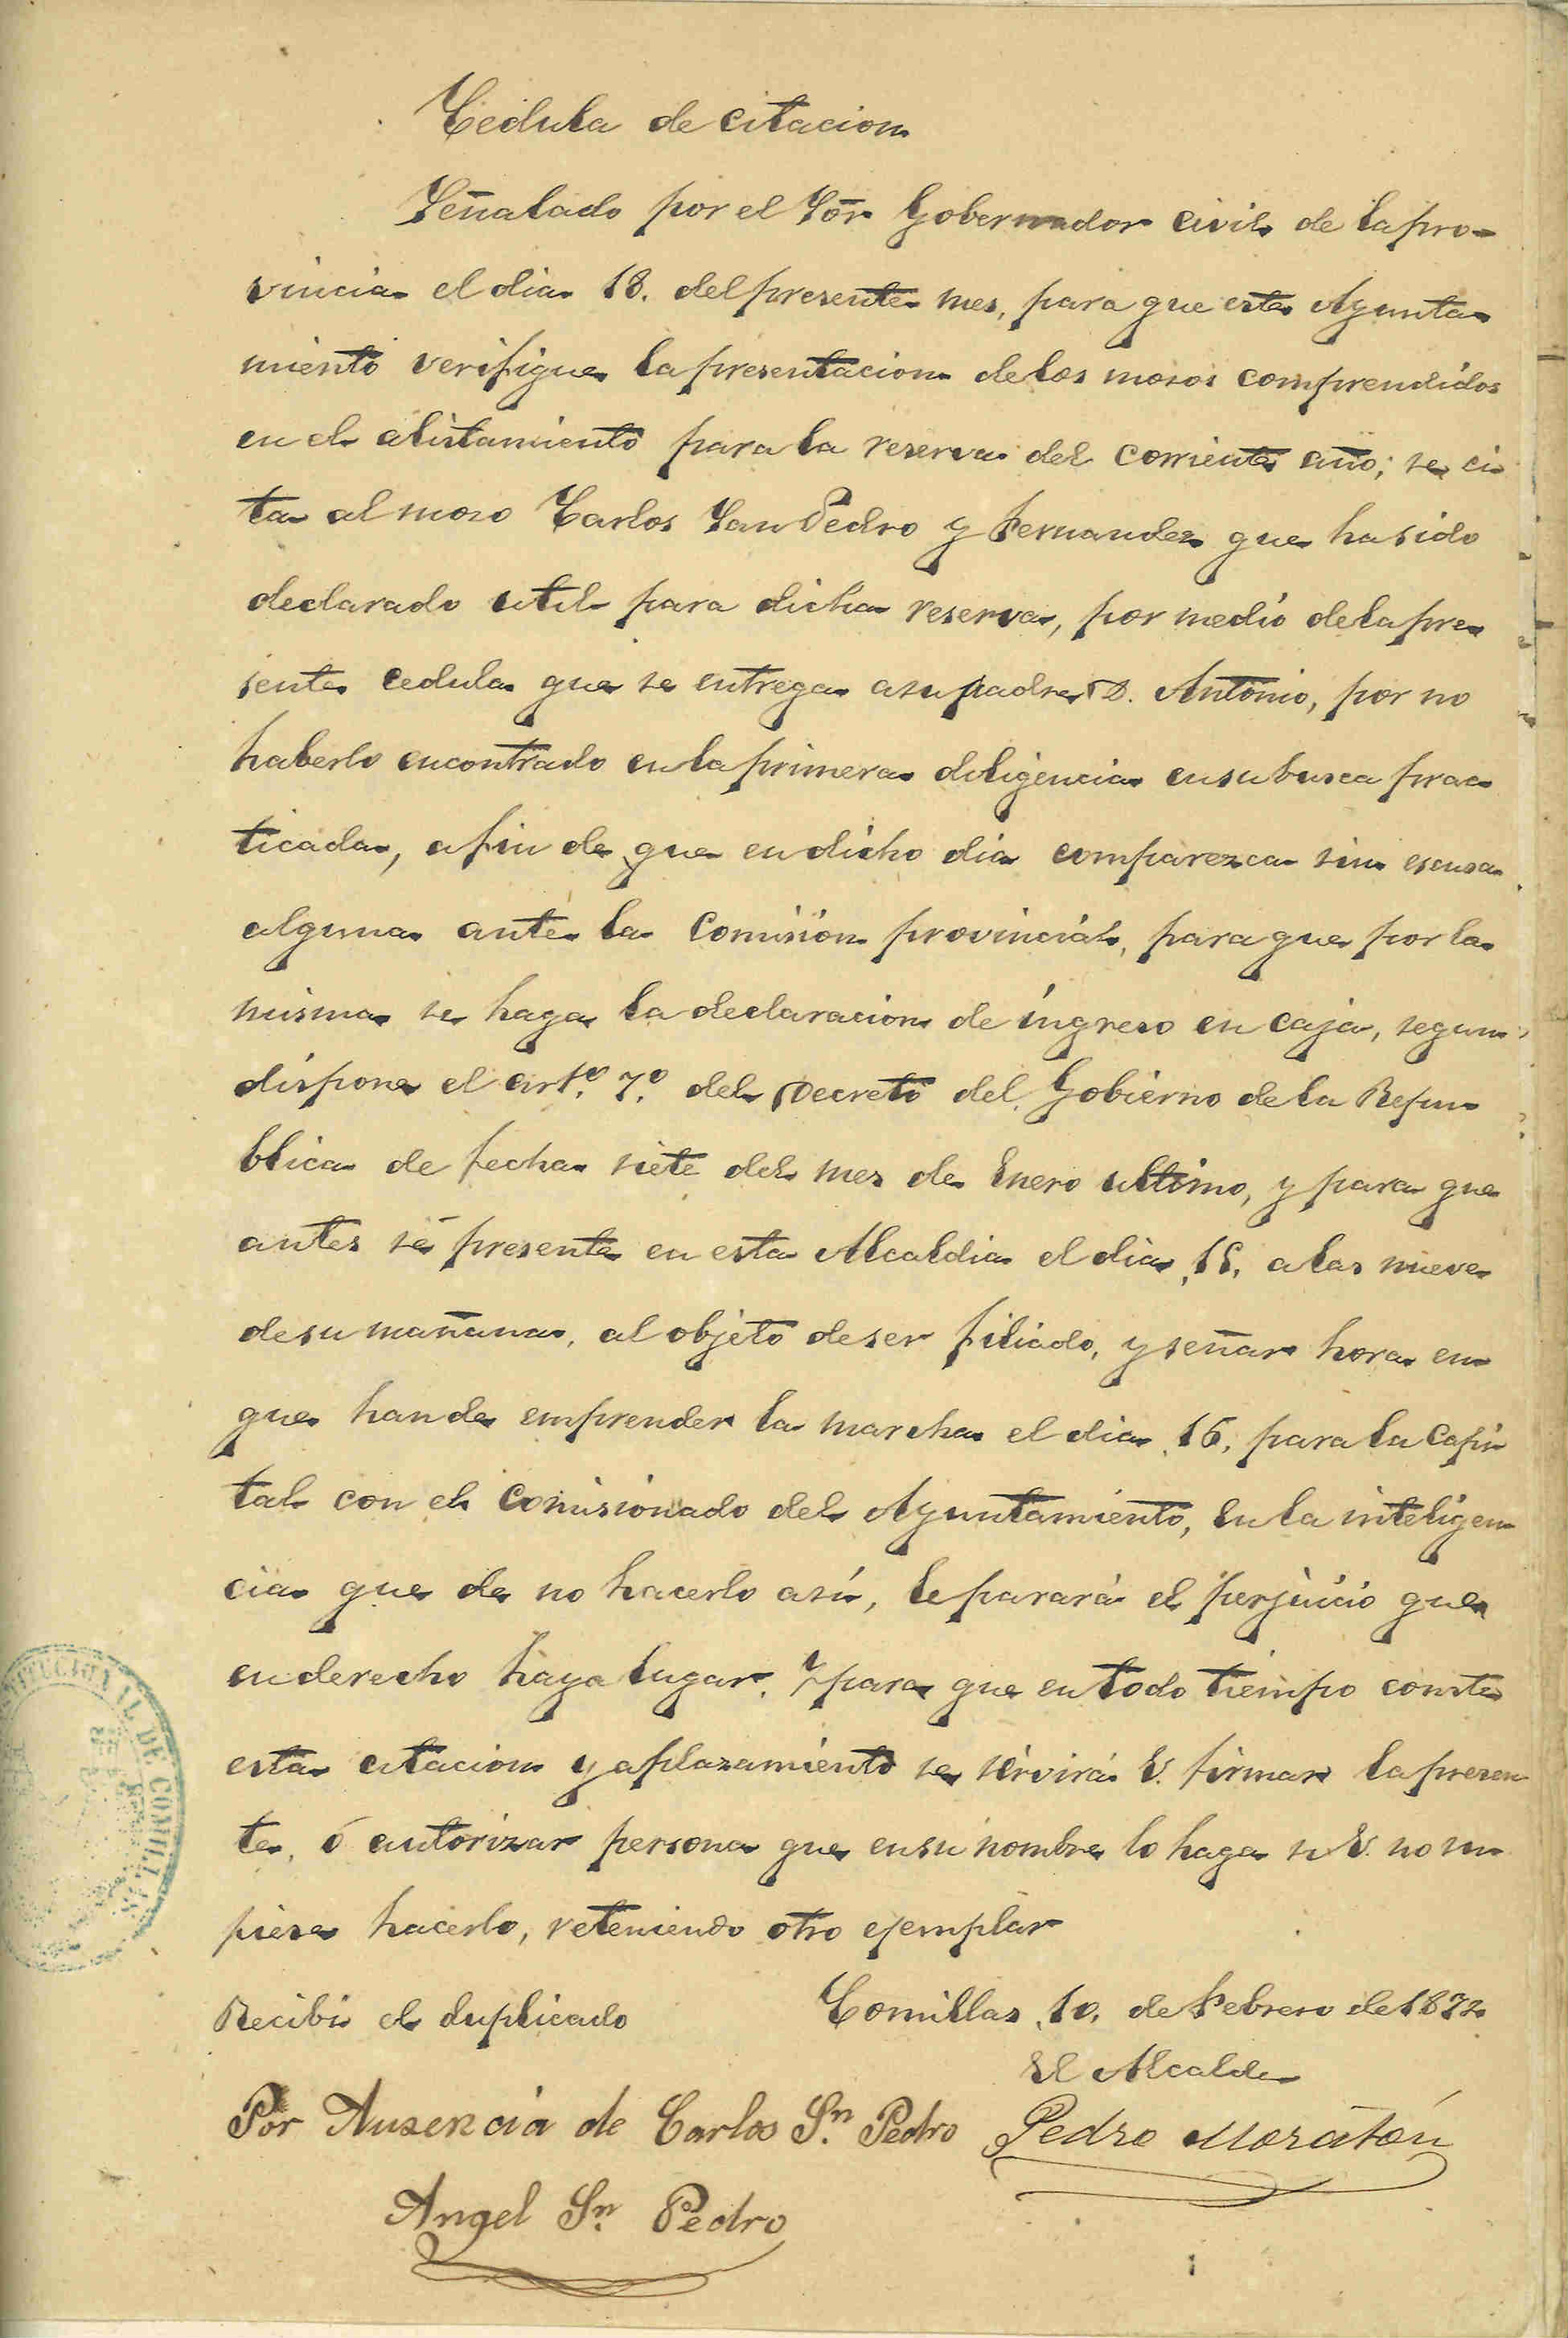 Cedula de citacion
Señalado por el Sor. Gobernador civil de la pro-
vincia el dia 18. del presente mes, para que este Ayunta-
miento verifique la presentacion de los mosos comprendidos
en el alistamiento para la reserva del corriente año; se ci-
ta al moso Carlos San Pedro y Fernandez que ha sido
declarado util para dicha reserva, por medio de la pre-
sente cedula que se entrega a su padre D. Antonio, por no
haberlo encontrado en la primera diligencia en su busca prac-
ticada, a fin de que en dicho dia comparezca sin escusa
alguna ante la Comision provincial, para que por la
misma se haga la declaracion de ingreso en caja, segun
dispone el arto. 7.º del Decreto del Gobierno de la Repu-
blica de fecha siete del mes de Enero ultimo, y para que
antes se presente en esta Alcaldia el dia 15. a las nueve
de su mañana, al objeto de ser filiado, y señar hora en
que han de emprender la marcha el dia 16, para la Capi-
tal con el Comisionado del Ayuntamiento, En la inteligen-
cia que de no hacerlo así, le parará el perjuicio que
en derecho haya lugar. Y para que en todo tiempo conste
esta citacion y aplazamiento se servirá V. firmar la presen-
te, ó autorizar persona que en su nombre lo haga si V. no su-
piese hacerlo, reteniendo otro ejemplar
Recibi el duplicado
Comillas 10. de Febrero de
El Alcalde
Por Ausencia de Carlos Sn. Pedro
Pedro Moratón
Angel Sn. Pedro
DE COMILLAS